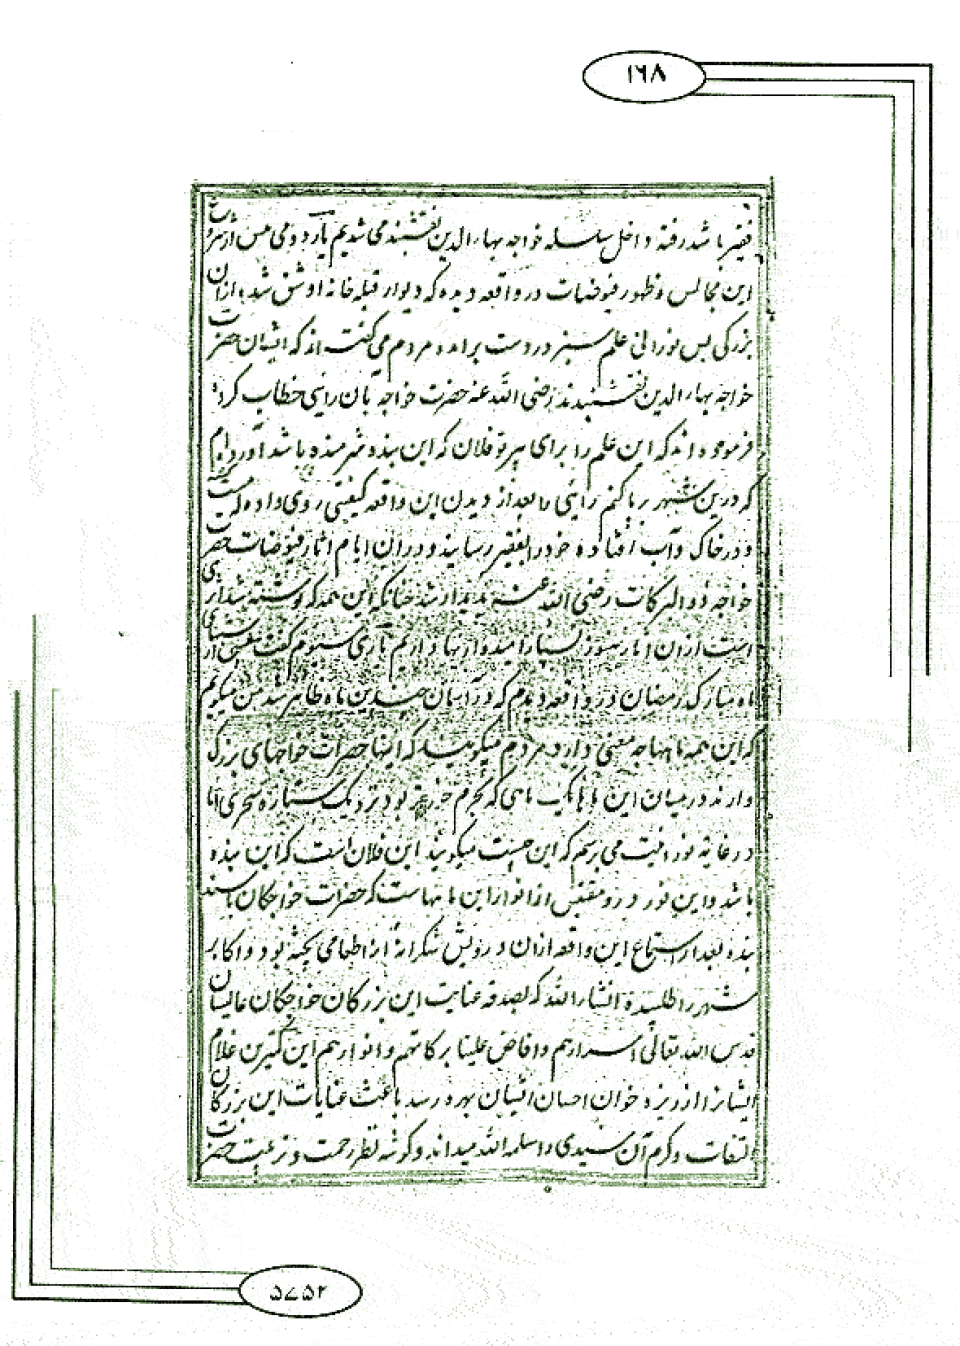 ۱۶۸
فقیر باشد رفته داخل سلسله خواجه بهاءالدین نقشبند می شدیم یا
این مجالس و ظهور فیوضات در واقعه دیده که دیوار قبله خانه او شق شد از ان
بزرگی بس نورانی علم سبز در دست برآمده مردم می گفته اند که ایشان حضرت
خواجه بهاءالدین نقشبندند رضی الله عنه حضرت خواجه بان خطاب کرده
فرموده اند که این علم را برای پیر تو فلان که این بنده شرمنده باشد آورده ام
که درین شهر برپا کنم بعد از دیدن این واقعه کیفیتی روی داده
و در خاک و آب افتاده خود را بفقیر رسانید و در ان ایام آثار فیوضات حضرت
خواجه ذوالبرکات رضی الله عنه پدیدار شد چنانکه این همه که نوشته شد
است ازان هنوز بسیار امیدواریها دارم گفت
ماه مبارک رمضان در واقعه دیدم که در آسمان چندین ماه ظاهر شد من میگویم
که این همه ماهها چه معنی دارد مردم میگویند که اینها حضرات خواجهای بزرگ
وارند در میان این ماهها یک ماهی که بود نزدیک ستاره سحری اما
در غایه نورانیت می پرسم که این چیست میگویند این فلان است که این بنده
باشد و این نور درو مقتبس از انوار این ماههاست که حضرات خواجگان باشند
بنده بعد از استماع این واقعه ازان درویش شکرانه طعامی پخته بود و اکابر
شهر را طلبیده انشاءالله که بصدقه عنایت این بزرگان خواجگان عالیشان
قدس الله تعالی اسرارهم و افاض علینا برکاتهم و انوارهم این کمترین غلام
ایشانرا از ریزه خوان احسان ایشان بهره رسد باعث عنایات این بزرگان
التفات و کرم آن سیدی سلمه الله میداند و گوشه نظر رحمت و حضرت
۵۷۵۲